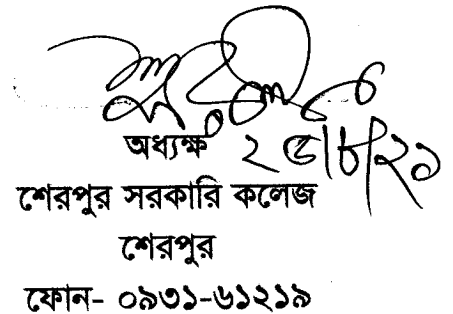 অধ্যক্ষ ২৫/৮/২১
শেরপুর সরকারি কলেজ
শেরপুর
ফোন- ০৯৩১-৬১২১৯